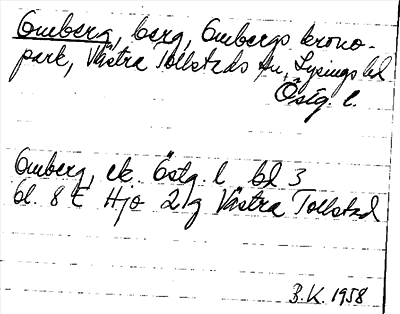 Omberg, berg, Ombergs krono-
park, Västra Tollstads sn, Lysings hd
Östg. l.
Omberg, ek. Östg l bl 3
bl. 8 E Hjo 2 g Västra Tollstad
B.K. 1958